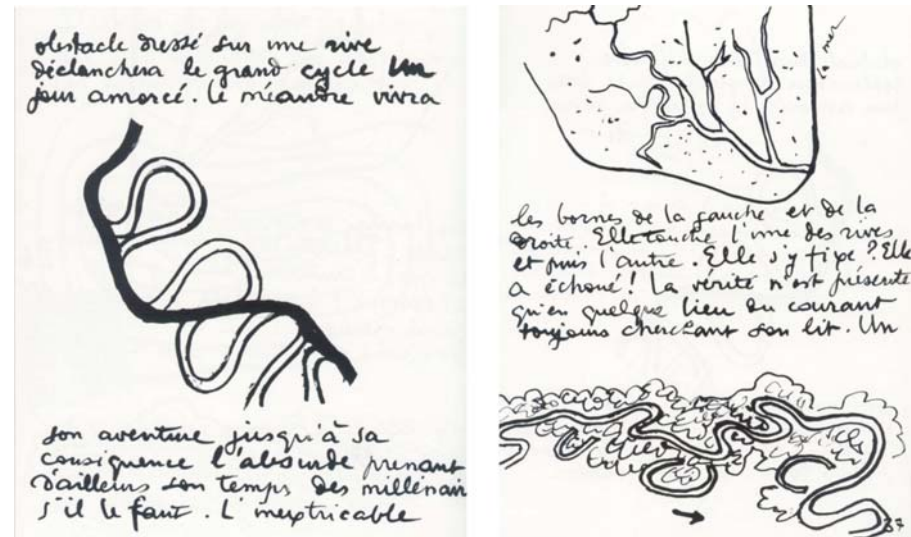 obstacle dressé sur une rive
déclanchera le grand cycle un
jour amorcé. Le méandre vivra
son aventure jusqu'à sa
conséquence l'absurde prenant
d'ailleurs son temps des millénair
s'il le faut. L'inextricable
mer
les bornes de la gauche et de la
droite. Elle touche l'une des rives
et puis l'autre. Elle s'y fixe ? Elle
a échoué ! La vérité n'est présente
qu'en quelque lieu du courant
toujours cherchant son lit. Un
37